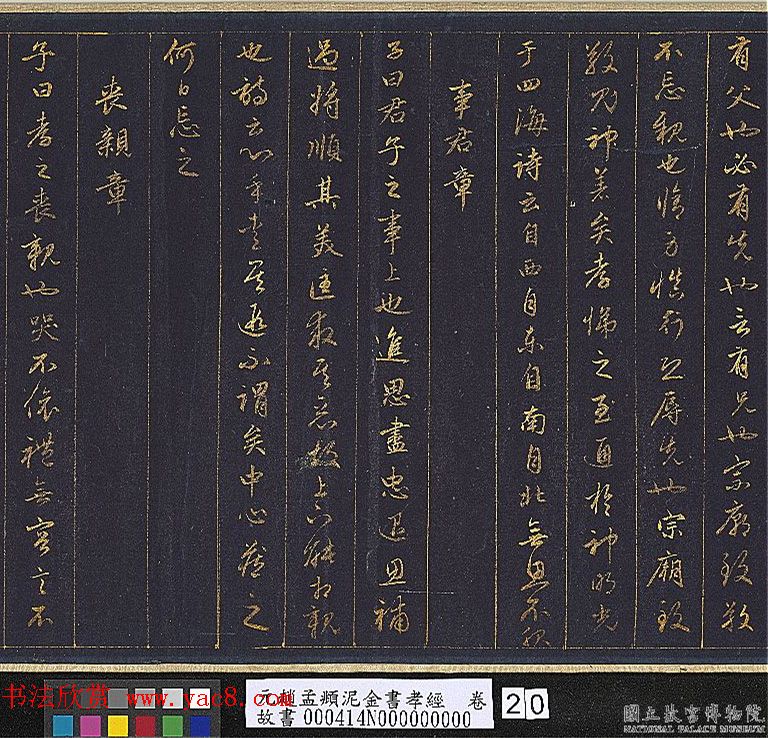 有父也必有先也言有兄也宗廟致敬
不忘親也脩身慎行恐辱先也宗廟致
敬鬼神著矣孝悌之至通於神明光
于四海诗云自西自东自南自北無思不服
事君章
子曰君子之事上也進思盡忠退思補
過將順其美匡救其惡故上下能相親
也詩云心乎愛矣遐不謂矣中心藏之
何日忘之
喪親章
子曰孝之喪親也哭不偯禮無容言不
元趙孟頫泥金書孝經 卷
故書000414N000000000
20
書法欣赏 www.yac8.com
國立故宮博物院
NATIONAL PALACE MUSEUM